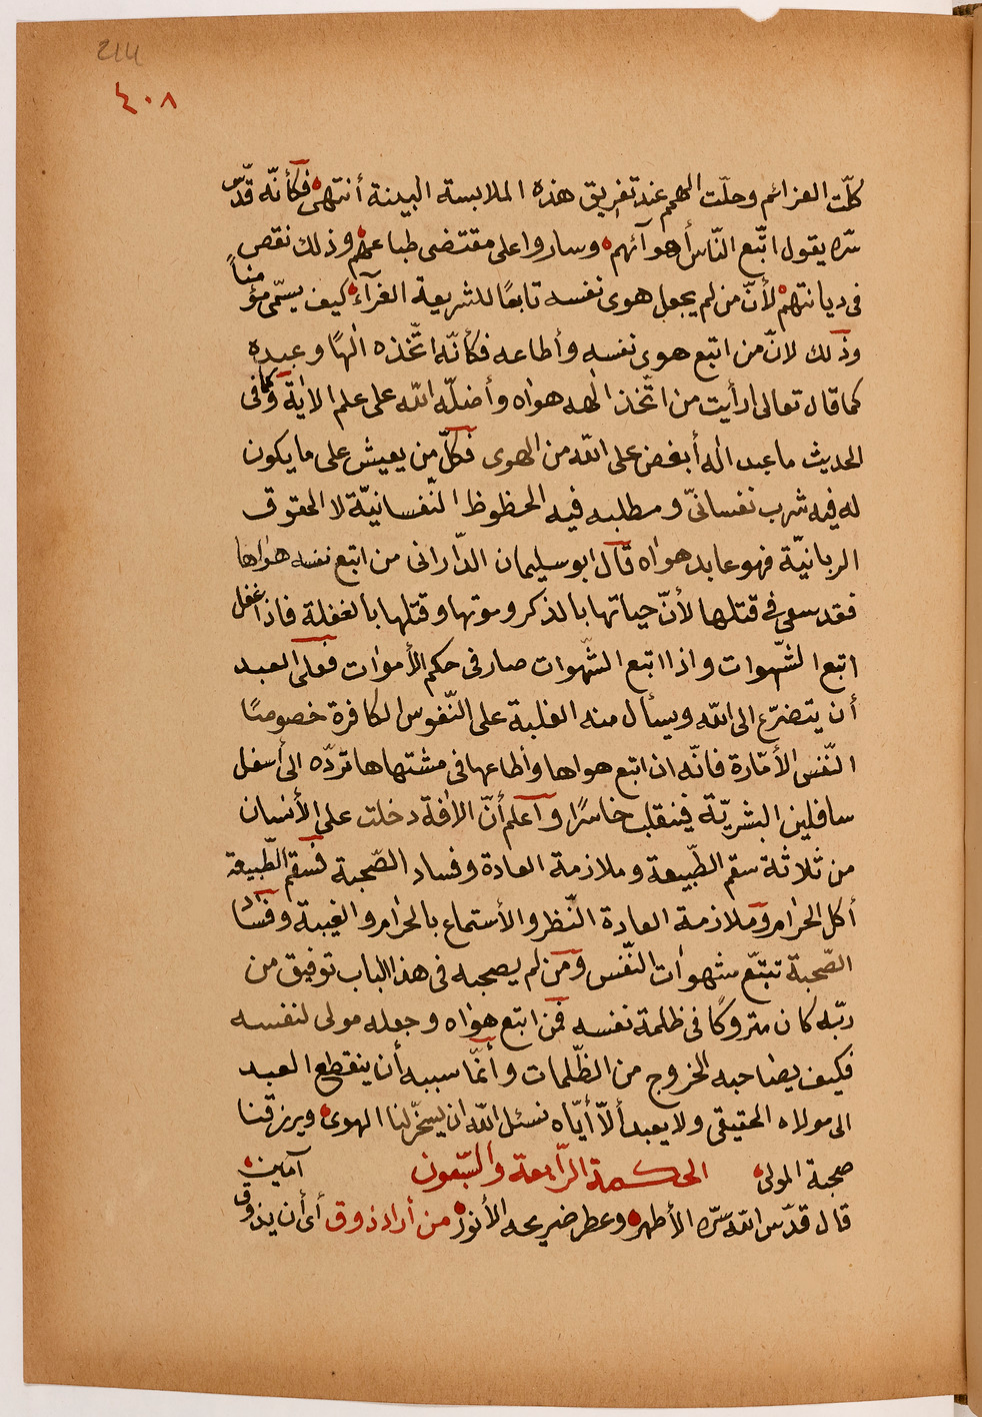 214
٤٠٨
كلّت العزائم وحلّت الهمم عند تفريق هذه الملابسة البينة أنتهى فكأنّه قدّس
سّره يقول اتّبع النّاس أهوآئهم وساروا على مقتضى طباعهم وذلك نقص
فى ديانتهم لأنّ من لم يجعل هوى نفسه تابعًا للشريعة الغرآء كيف يسمّى مؤمناً
وذلك لانّ من اتبع هوى نفسه وأطاعه فكأنّه اتّخذه الٰهًا وعبده
كما قال تعالى ارأيت من اتّخذ الٰهه هوٰاه وأضلّه الله على علم الاٰية وكما فى
الحديث ما عبد الٰه أبغض على الله من الهوى فكلّ من يعيش على ما يكون
له فيه شرب نفسانىّ ومطلبه فيه الحظوظ النّفسانيّة لا الحقوق
الربانيّة فهو عابد هوٰاه قال ابو سليمان الدّارانى من اتبع نفسه هوٰاها
فقد سعى فى قتلها لأنّ حياتها بالذكر وموتها وقتلها بالغفلة فاذا غفل
اتبع الشّهوات واذا اتبع الشّهوات صار فى حكم الأموٰات فعلى العبد
أن يتضرّع الى الله ويسأل منه الغلبة على النّفوس الكافرة خصوصًا
النّفس الأمّارة فانّه ان اتبع هواها وأطاعها فى مشتهاها تردّه الى أسفل
سافلين البشريّة فينقلب خاسرًا وآعلم أنّ الاٰفة دخلت على الأنسان
من ثلاثة سقم الطّبيعة وملازمة العادة وفساد الصّحبة فسقم الطّبيعة
أكل الحرٰام وملازمة العادة النّظر والأستماع بالحرٰام والغيبة وفساد
الصّحبة تبتّع شهوٰات النّفس ومن لم يصحبه فى هذا الباب توفيق من
ربّه كان متروكًا فى ظلمة نفسه فمن ابتع هوٰاه وجعله مولى لنفسه
فكيف يصٰاحبه الخروج من الظّلمات وأنّما سببه أن ينقطع العبد
الى مولاه الحقيقى ولا يعبد ألّا أيّاه نسئل الله ان يسخّر لنا الهوى ويرزقنا
صحبة المولى الحكمة الرّابعة والسّبعون آمين
قال قدّس الله سّره الأطهر وعطر ضريحه الأنور من أراد ذوق أى أن يذوق